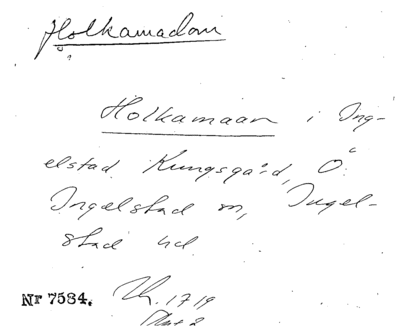 Holkamadam
Holkamaan i Ing-
elstad Kungsgård, Ö.
Ingelstad sn, Ingel-
stad hd.
Nr 7584. 1719